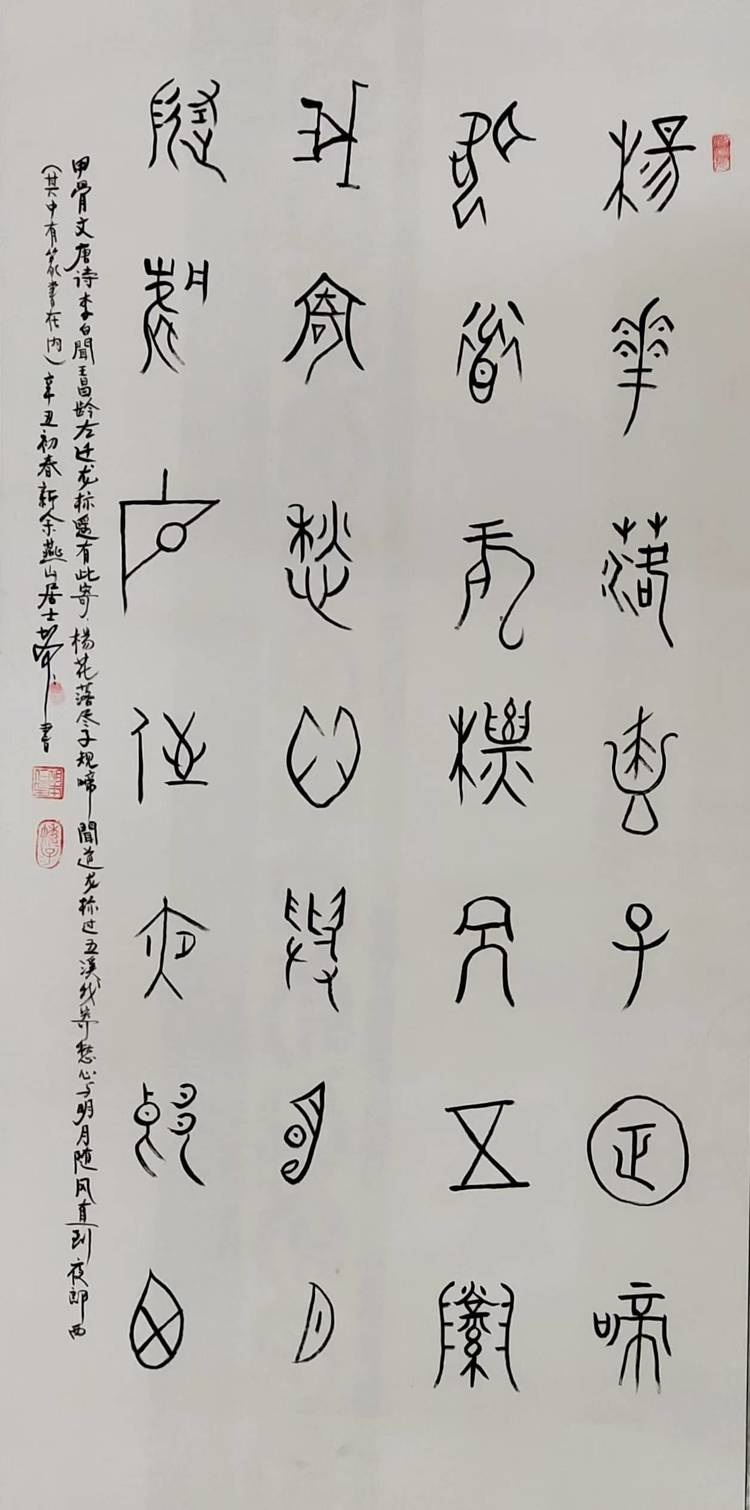 楊華落盡子規啼
聞道龍標過五溪
我寄愁心與明月
隨風直到夜郎西
甲骨文唐诗李白聞王昌龄左迁龙标遥有此寄．楊花落尽子规啼 聞道龙标过五溪我寄愁心与明月随风直到夜郎西
(其中有篆書在内) 辛丑初春新余燕山居士書